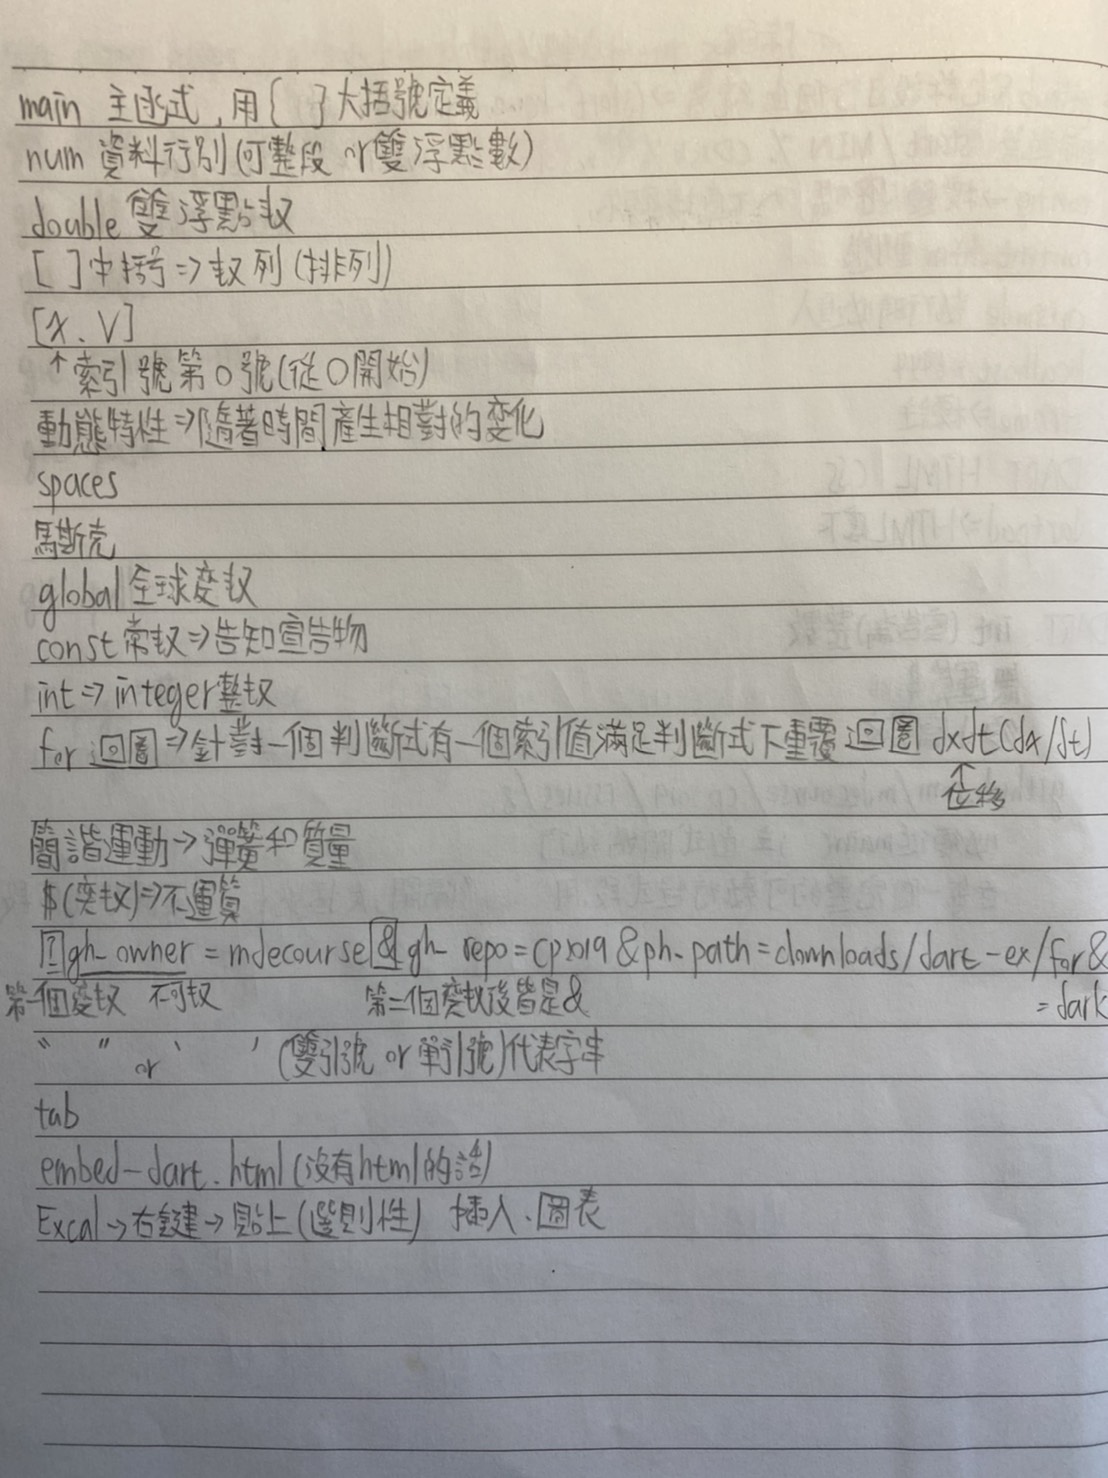 main 主函式,用{ }大括號定義
num 資料行別(可整段 or 雙浮點數)
double 雙浮點权
[ ]中括号⇒权列(排列)
[x、V]
↑索引號第0號(從0開始)
動態特性⇒隨著時間產生相對的变化
spaces
馬斯克
global 全球变权
const 常权⇒告知宣告物
int⇒integer整权
for 迴圈⇒針對一個判斷式有一個索引值滿足判斷式下重覆迴圈 dxdt(dx/dt)
↑
位移
簡諧運動→彈簧和質量
$(变权)⇒不運算
?gh_owner = mdecourse & gh_repo=cp2019 &ph_path=downloads/dart-ex/for&
第一個变权 不可权 第二個变权後皆是& =dark
“ ” or ‘ ’ (雙引號 or 單引號)代表字串
tab
embed-dart.html(沒有html的話)
Excal→右鍵→貼上(選則性) 插入、圖表